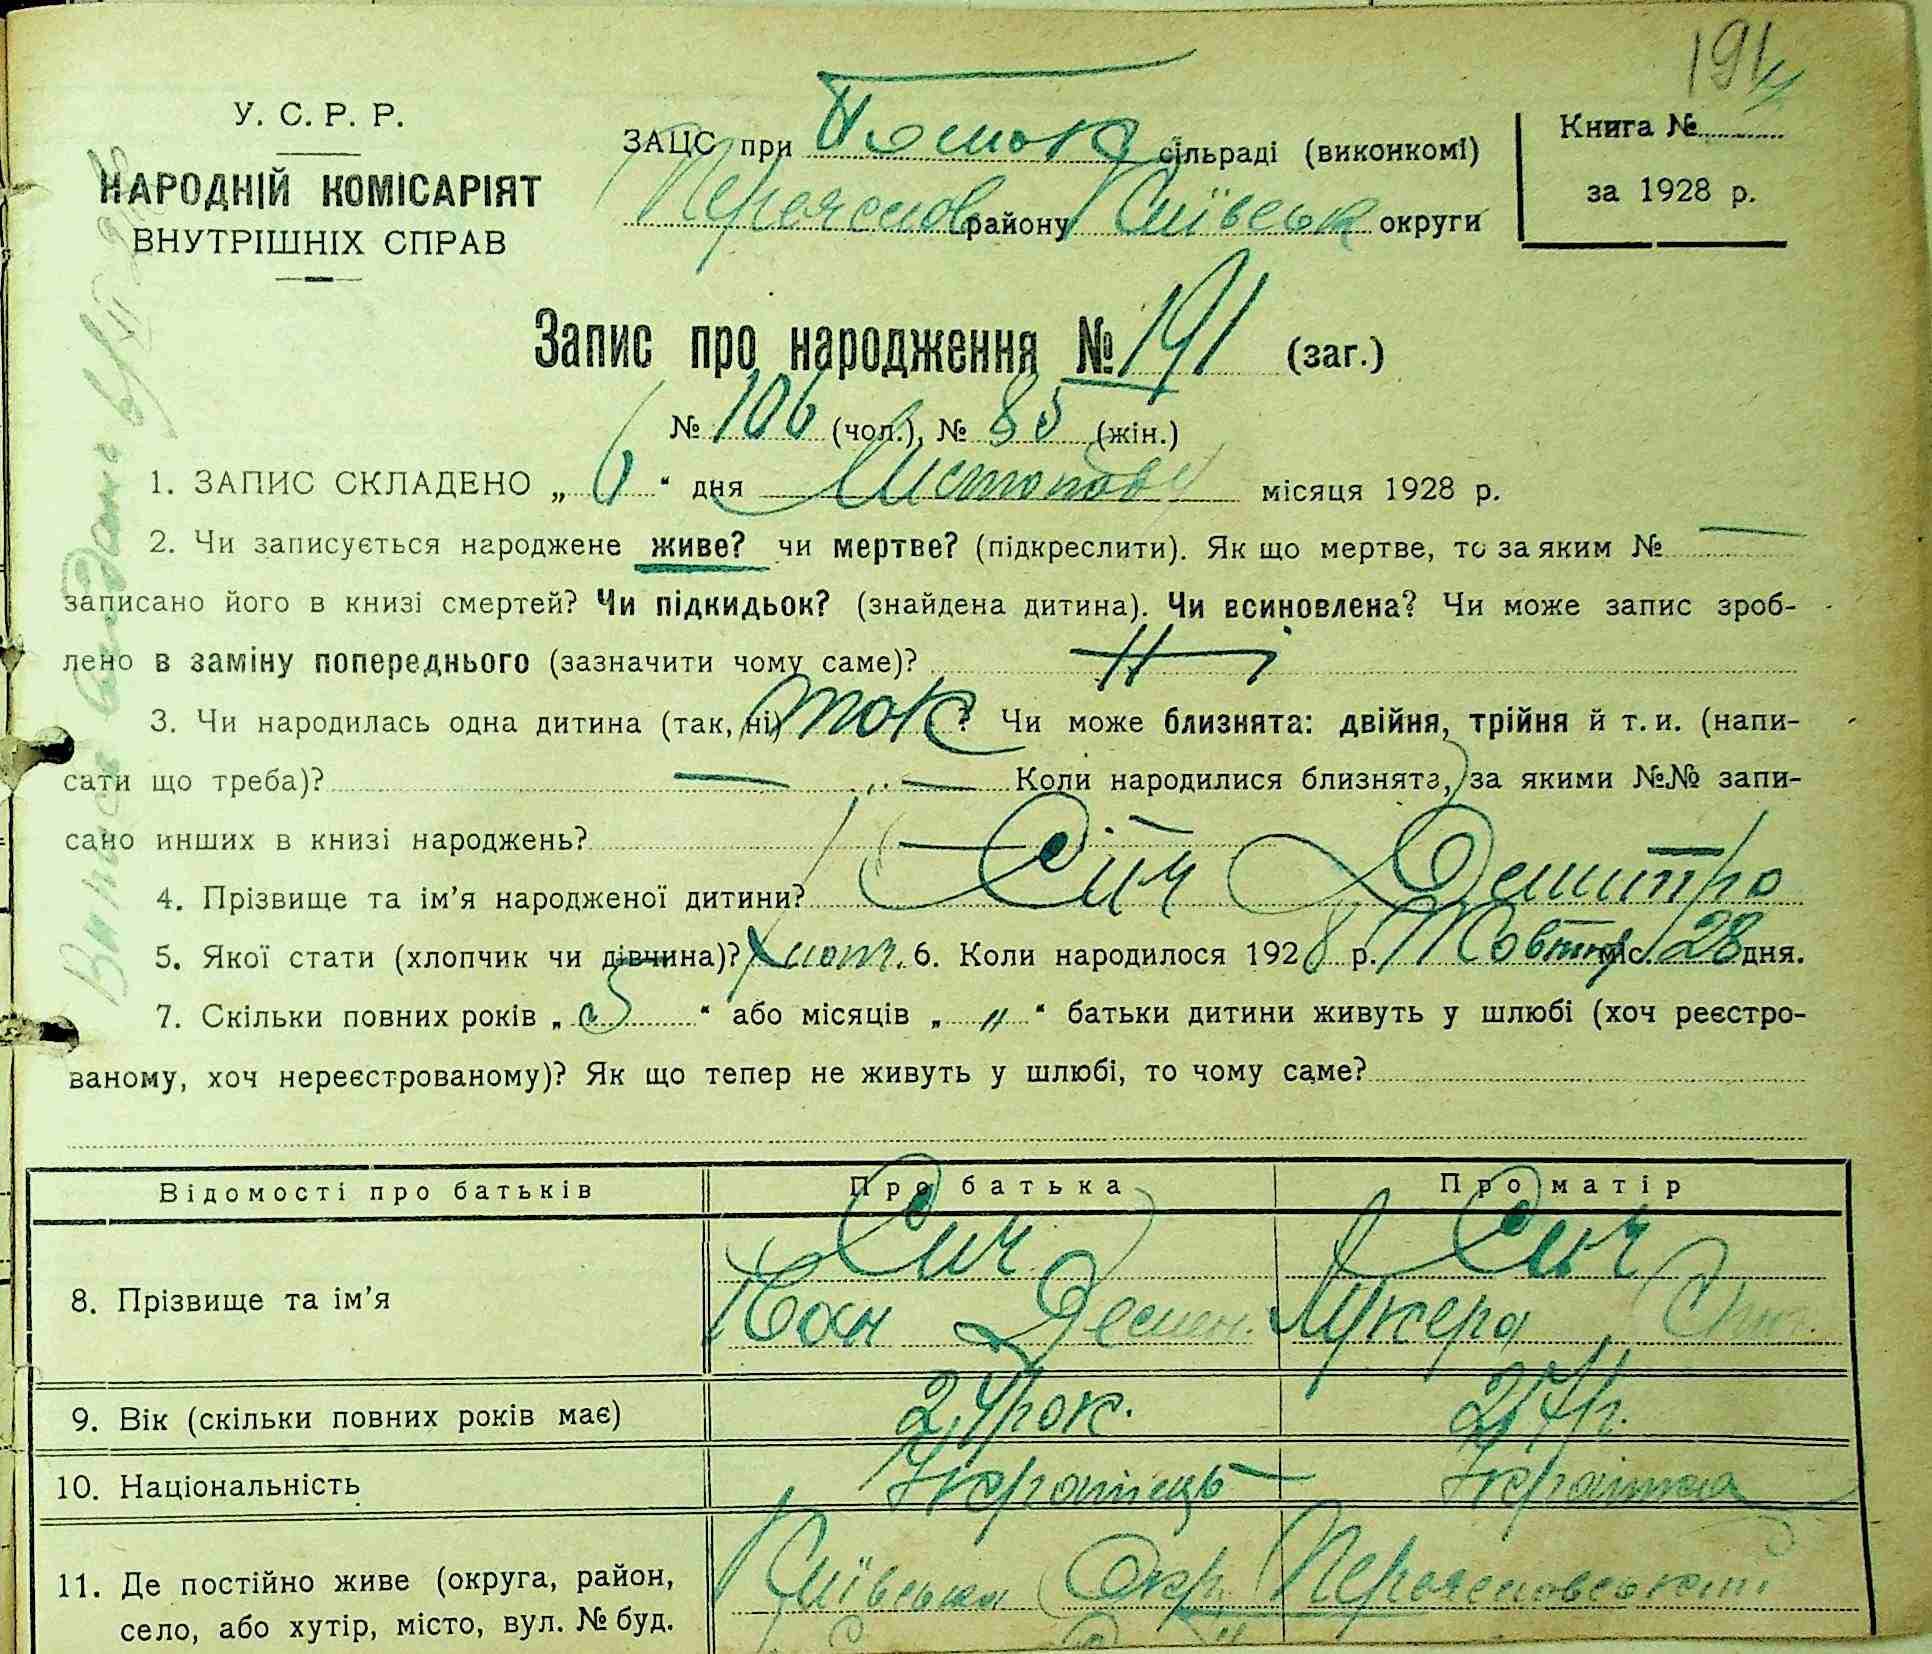 191
У. С. Р. Р.
НАРОДНІЙ КОМІСАРІЯТ
ВНУТРІШНІХ СПРАВ
ЗАЦС при сільраді (виконкомі)
Переяслов району Київськ округи
Книга №
за 1928 р.
Запис про народження № 191 (заг.)
№ 106 (чол.), № 85 (жін.)
1. ЗАПИС СКЛАДЕНО „ 6 “ дня Листопаду місяця 1928 р.
2. Чи записується народжене живе? чи мертве? (підкреслити). Як що мертве, то за яким № —
записано його в книзі смертей? Чи підкидьок? (знайдена дитина). Чи всиновлена? Чи може запис зроб-
лено в заміну попереднього (зазначити чому саме)? Ні
3. Чи народилась одна дитина (так, ні) так ? Чи може близнята: двійня, трійня й т. и. (напи-
сати що треба)? — — Коли народилися близнята, за якими №№ запи-
сано инших в книзі народжень? —
4. Прізвище та ім’я народженої дитини? Сич Дмитро
5. Якої стати (хлопчик чи дівчина)? хлопч. 6. Коли народилося 1928 р. Жовтня міс. 28 дня.
7. Скільки повних років „ 5 “ або місяців „ " “ батьки дитини живуть у шлюбі (хоч реєстро-
ваному, хоч нереєстрованому)? Як що тепер не живуть у шлюбі, то чому саме?
Відомості про батьків Про батька Про матір
8. Прізвище та ім’я Сич Сич
Іван Демен. Лукера
9. Вік (скільки повних років має) 24 рок. 24 р.
10. Національність Українець Українка
11. Де постійно живе (округа, район, Київська Окр. Переясловський
село, або хутір, місто, вул. № буд.
Випись видано